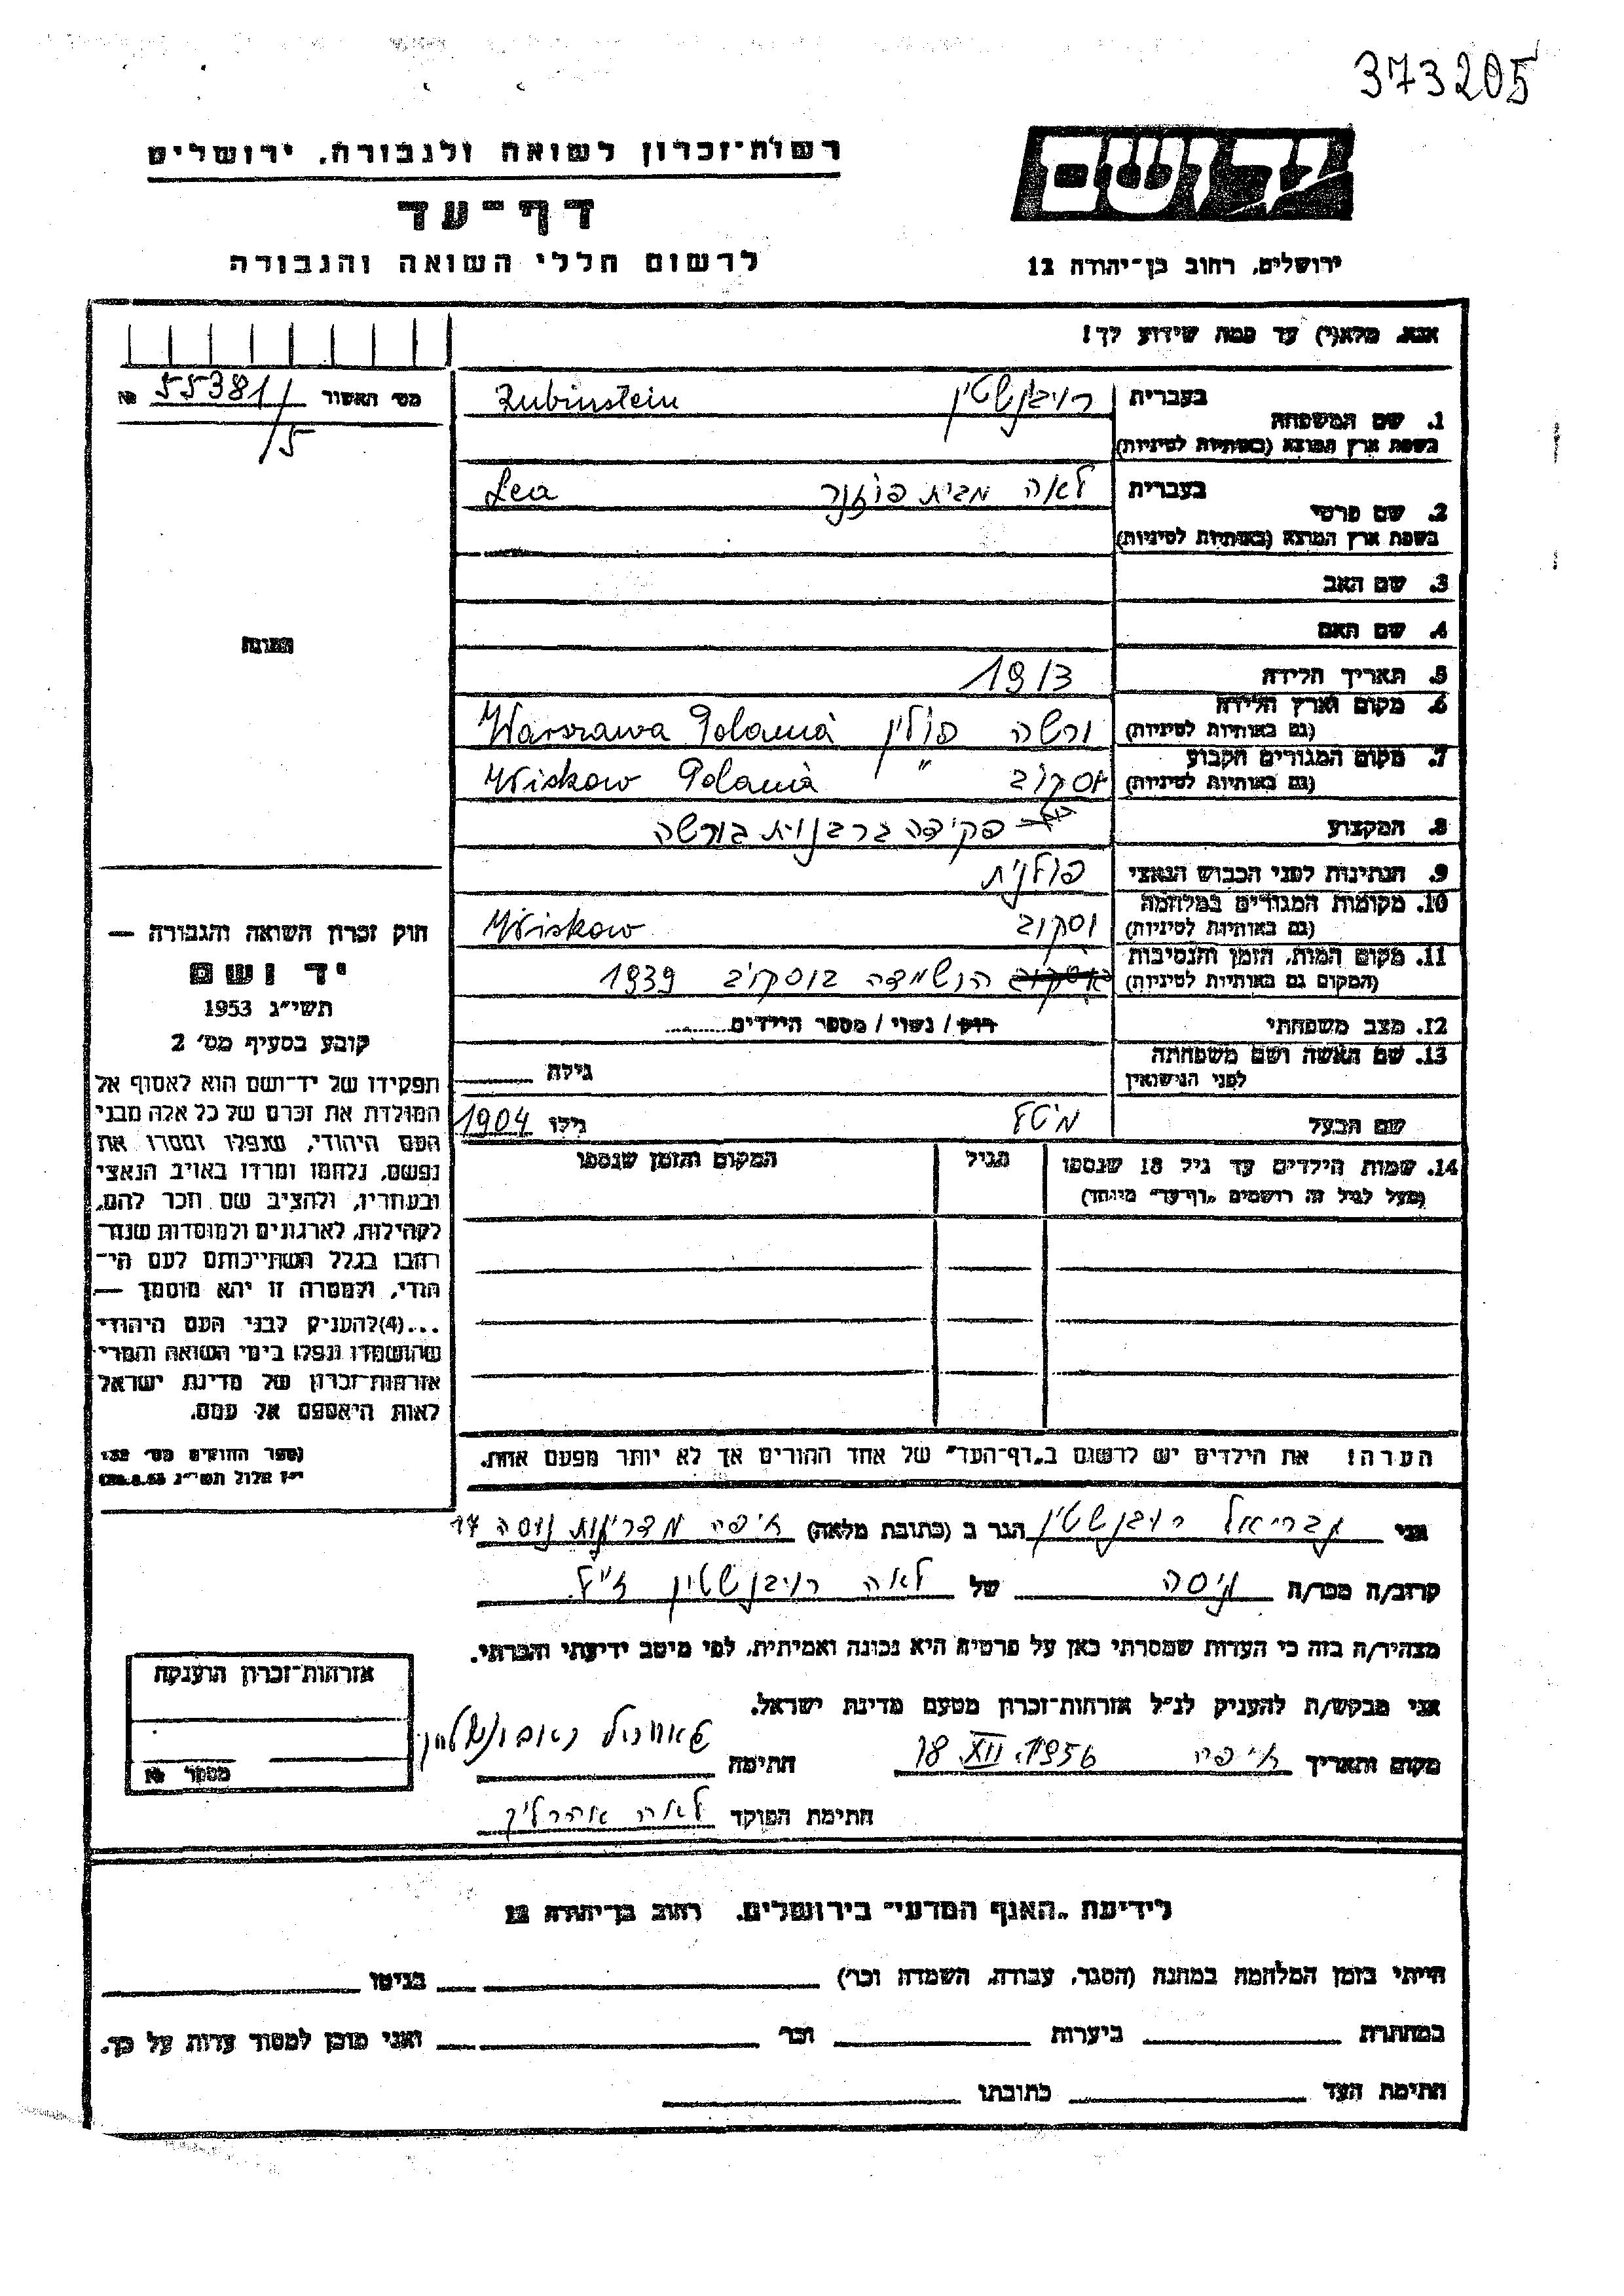 373205
יד ושם
רשות־זכרון לשואה ולגבורה, ירושלים
דף־עד
לרשום חללי השואה והגבורה
ירושלים, רחוב בן־יהודה 12
אנא, מלא(י) עד כמה שידוע לך!
מס׳ האשור 55381/5 №
1. שם המשפחה בעברית רובינשטין Rubinstein
בשפת ארץ המוצא (באותיות לטיניות)
2. שם פרטי בעברית לאה מבית פוזנר Lea
בשפת ארץ המוצא (באותיות לטיניות)
3. שם האב
4. שם האם
תמונה
5. תאריך הלידה 1913
6. מקום וארץ הלידה ורשה פולין Warszawa Polania
(גם באותיות לטיניות)
7. מקום המגורים הקבוע וסקוב " Wiskow Polania
(גם באותיות לטיניות)
8. המקצוע פקידה ברבנות בורשה
9. הנתינות לפני הכבוש הנאצי פולנית
10. מקומות המגורים במלחמה וסקוב Wiskow
(גם באותיות לטיניות)
11. מקום המות, הזמן והנסיבות הושמדה בוסקוב 1939
(המקום גם באותיות לטיניות)
12. מצב משפחתי רוק / נשוי / מספר הילדים
13. שם האשה ושם משפחתה גילה
לפני הנישואין
שם הבעל גילו 1904
14. שמות הילדים עד גיל 18 שנספו הגיל המקום והזמן שנספו
(מעל לגיל זה רושמים „דף־עד" מיוחד)
חוק זכרון השואה והגבורה —
יד ושם
תשי״ג 1953
קובע בסעיף מס׳ 2
תפקידו של יד־ושם הוא לאסוף אל
המולדת את זכרם של כל אלה מבני
העם היהודי, שנפלו ומסרו את
נפשם, נלחמו ומרדו באויב הנאצי
ובעוזריו, ולהציב שם וזכר להם,
לקהילות, לארגונים ולמוסדות שנח־
רבו בגלל השתייכותם לעם הי־
הודי, ולמטרה זו יהא מוסמך —
...(4)להעניק לבני העם היהודי
שהושמדו ונפלו בימי השואה והמרי
אזרחות־זכרון של מדינת ישראל
לאות היאספם אל עמם.
(ספר החוקים מס׳ 132
י״ז אלול תשי״ג 28.8.53)
הערה! את הילדים יש לרשום ב„דף־העד" של אחד ההורים אך לא יותר מפעם אחת.
אני גבריאל רובינשטין הגר ב (כתובת מלאה) חיפה
קרוב/ה מכר/ה גיסה של לאה רובינשטין ז״ל
מצהיר/ה בזה כי העדות שמסרתי כאן על פרטיה היא נכונה ואמיתית, לפי מיטב ידיעתי והכרתי.
אני מבקש/ת להעניק לנ״ל אזרחות־זכרון מטעם מדינת ישראל.
מקום ותאריך חיפה 18 XII 1956 חתימה
חתימת הפוקד לאה
אזרחות־זכרון הוענקה
מספר №
לידיעת „האגף המדעי" בירושלים, רחוב בן־יהודה 12
הייתי בזמן המלחמה במחנה (הסגר, עבודה, השמדה וכו׳) בגיטו
במחתרת ביערות וכו׳ ואני מוכן למסור עדות על כך.
חתימת העד כתובתו